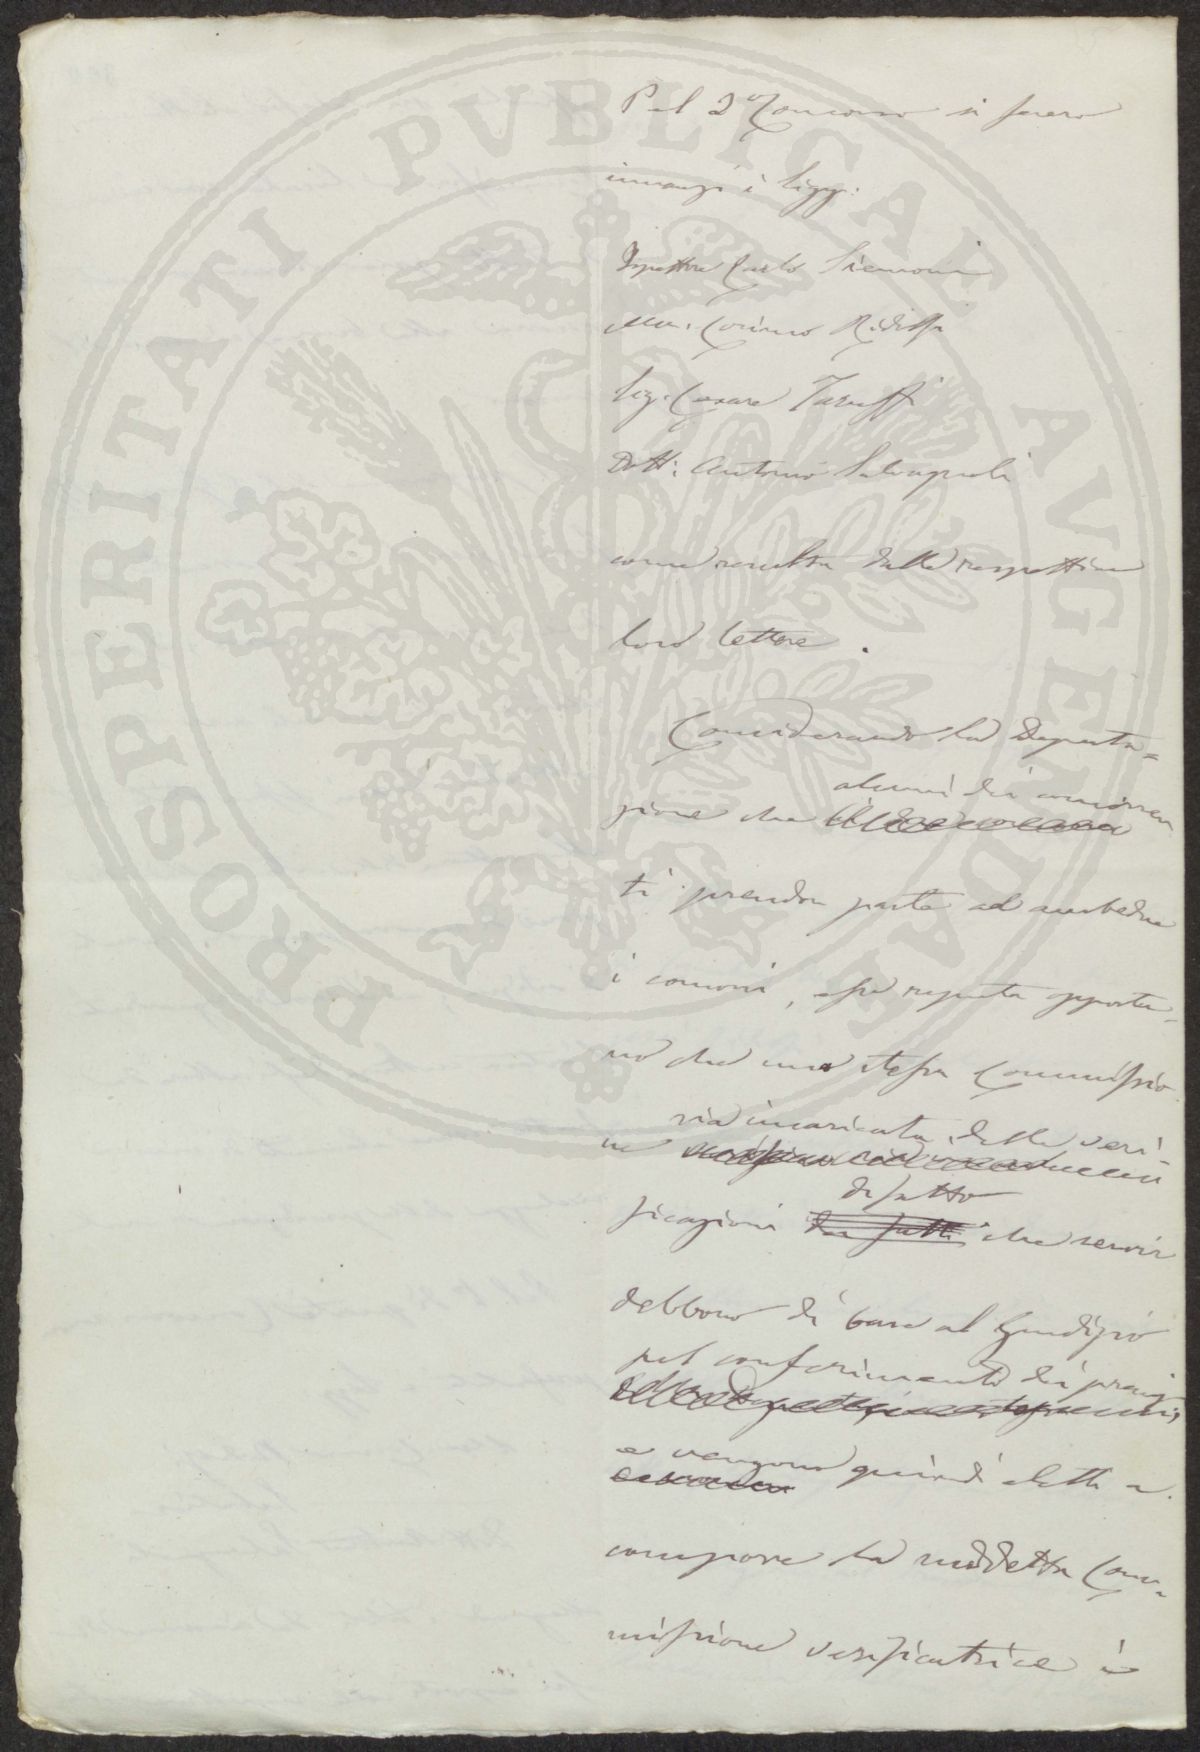 Pel 2º Concorso si fecero
innanzi i Sigg:
Ispettore Carlo Siemoni
Mar. Cosimo Ridolfi
Sig. Cesare Taruffi
Dott: Antonio Salvagnoli
come resulta dalle respettive
loro lettere.
Considerando la Deputa=
zione che alcuni dei concorren
ti prendon parte ad ambedue
i concorsi, essa reputa opportu=
no che una stessa Commissio
ne sia incaricata delle veri=
ficazioni di fatto che servir
debbono di base al Giudizio
pel conferimento dei premj,
e vengono quindi eletti a
comporre la suddetta Com=
missione verificatrice i
PROSPERITATI PVBLICAE AVGENDAE